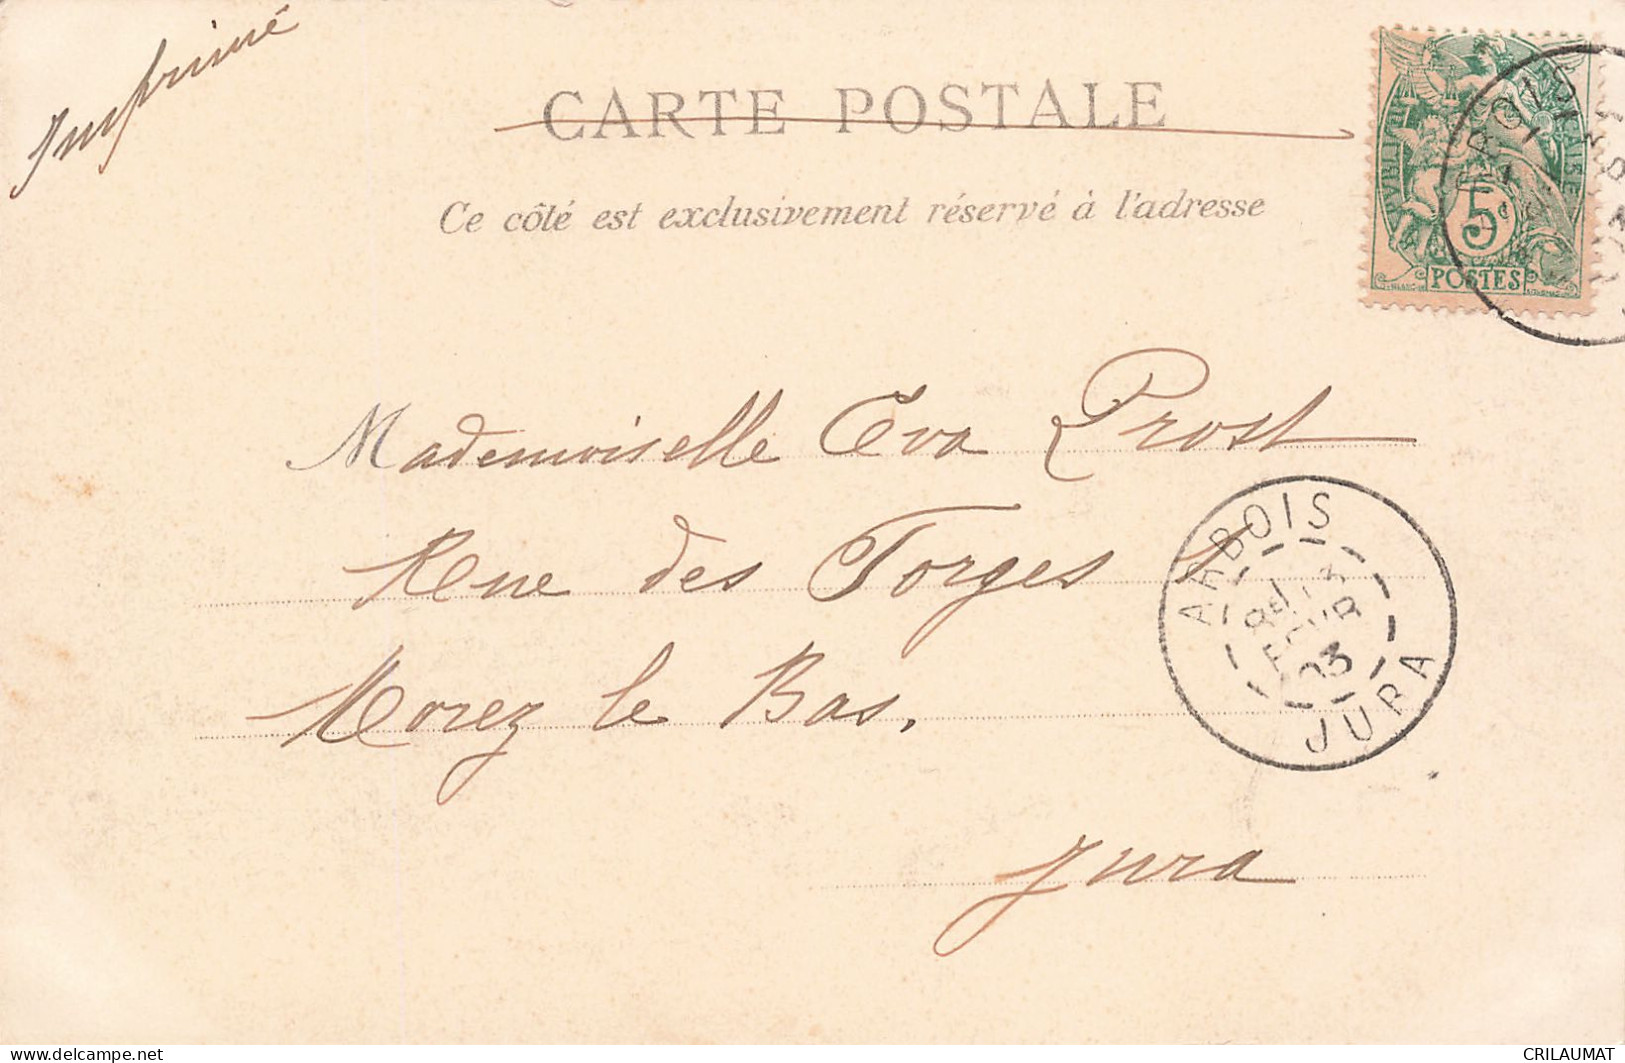 Imprimé
CARTE POSTALE
Ce côté est exclusivement réservé à l'adresse
5c
POSTES
Mademoiselle Eva Prost
Rue des Forges
Morez le Bas.
Jura
ARBOIS
03
JURA
delcampe.net
CRILAUMAT